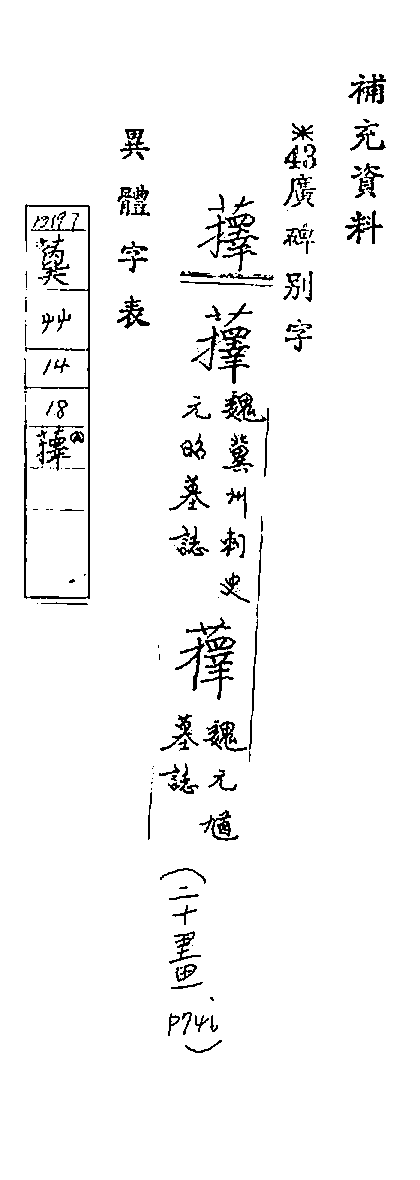 補充資料
※43廣碑別字
蘀
蘀
魏冀州刺史
元昭墓誌
蘀
魏元
墓誌
(二十畫、P746)
異體字表
13197
艸
14
18